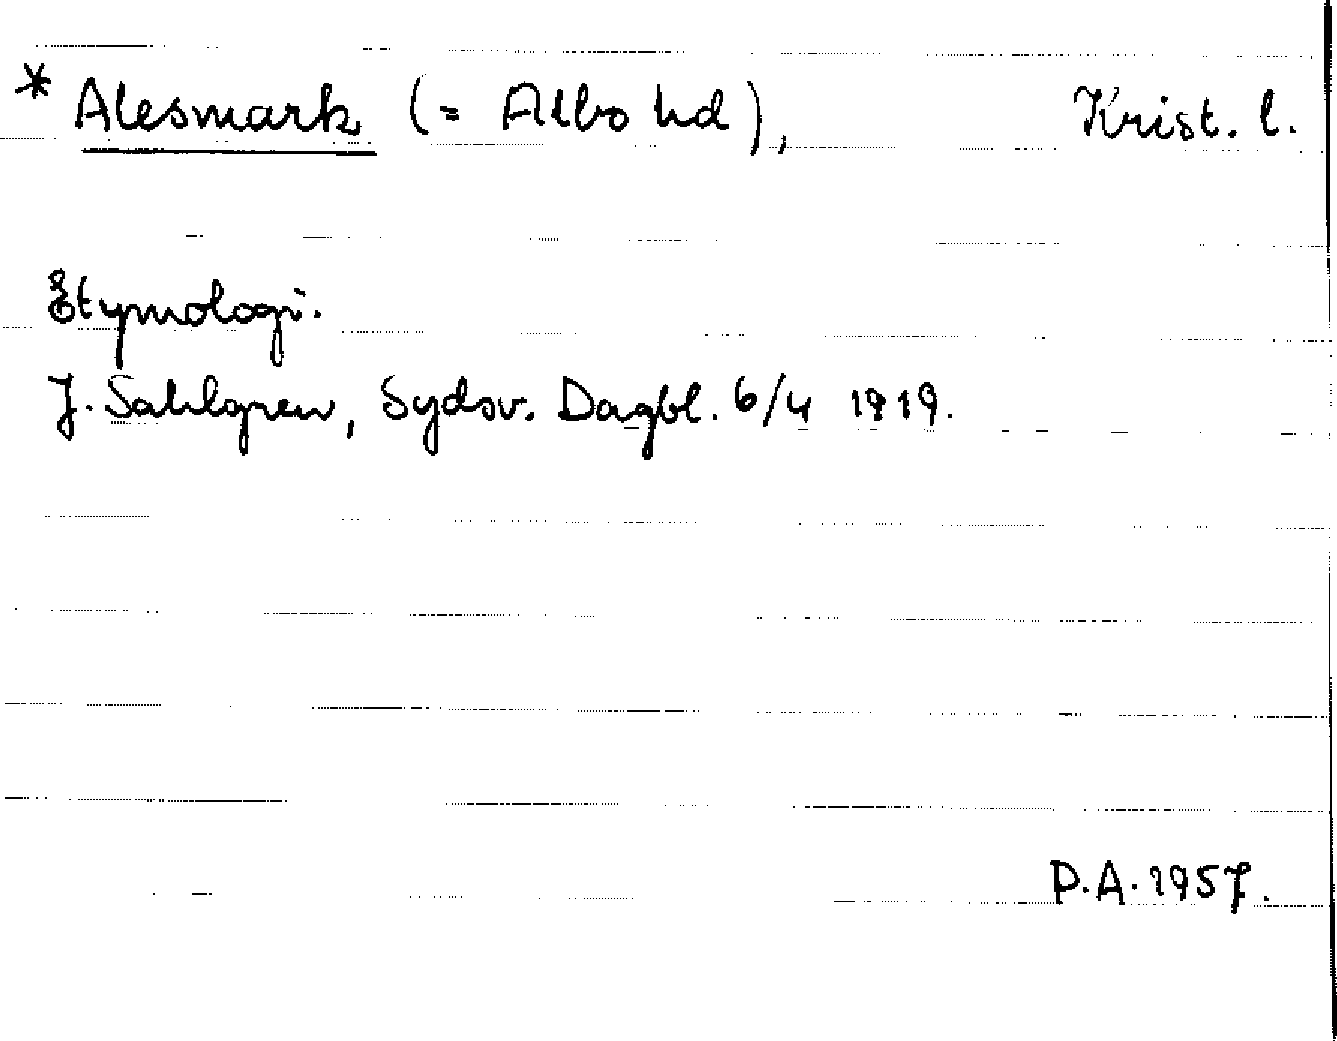 * Alesmark (= Albo hd), Krist. l.
Etymologi.
J. Sahlgren, Sydsv. Dagbl. 6/4 1919.
P.A. 1957.